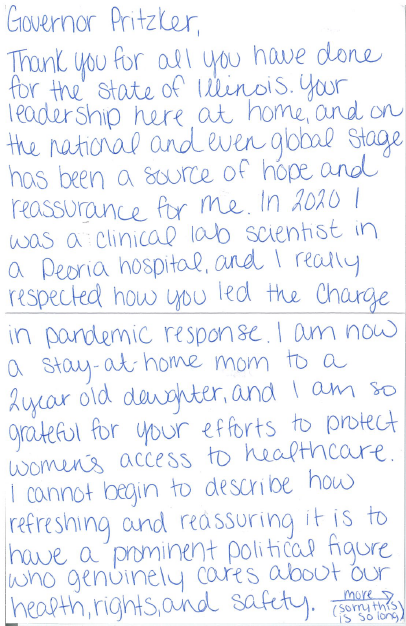 Governor Pritzker,
Thank you for all you have done
for the state of Illinois. Your
leadership here at home, and on
the national and even global stage
has been a source of hope and
reassurance for me. In 2020 I
was a clinical lab scientist in
a Peoria hospital, and I really
respected how you led the charge
in pandemic response. I am now
a stay-at-home mom to a
2 year old daughter, and I am so
grateful for your efforts to protect
women's access to healthcare.
I cannot begin to describe how
refreshing and reassuring it is to
have a prominent political figure
who genuinely cares about our
health, rights, and safety.
more →
(sorry this
is so long)